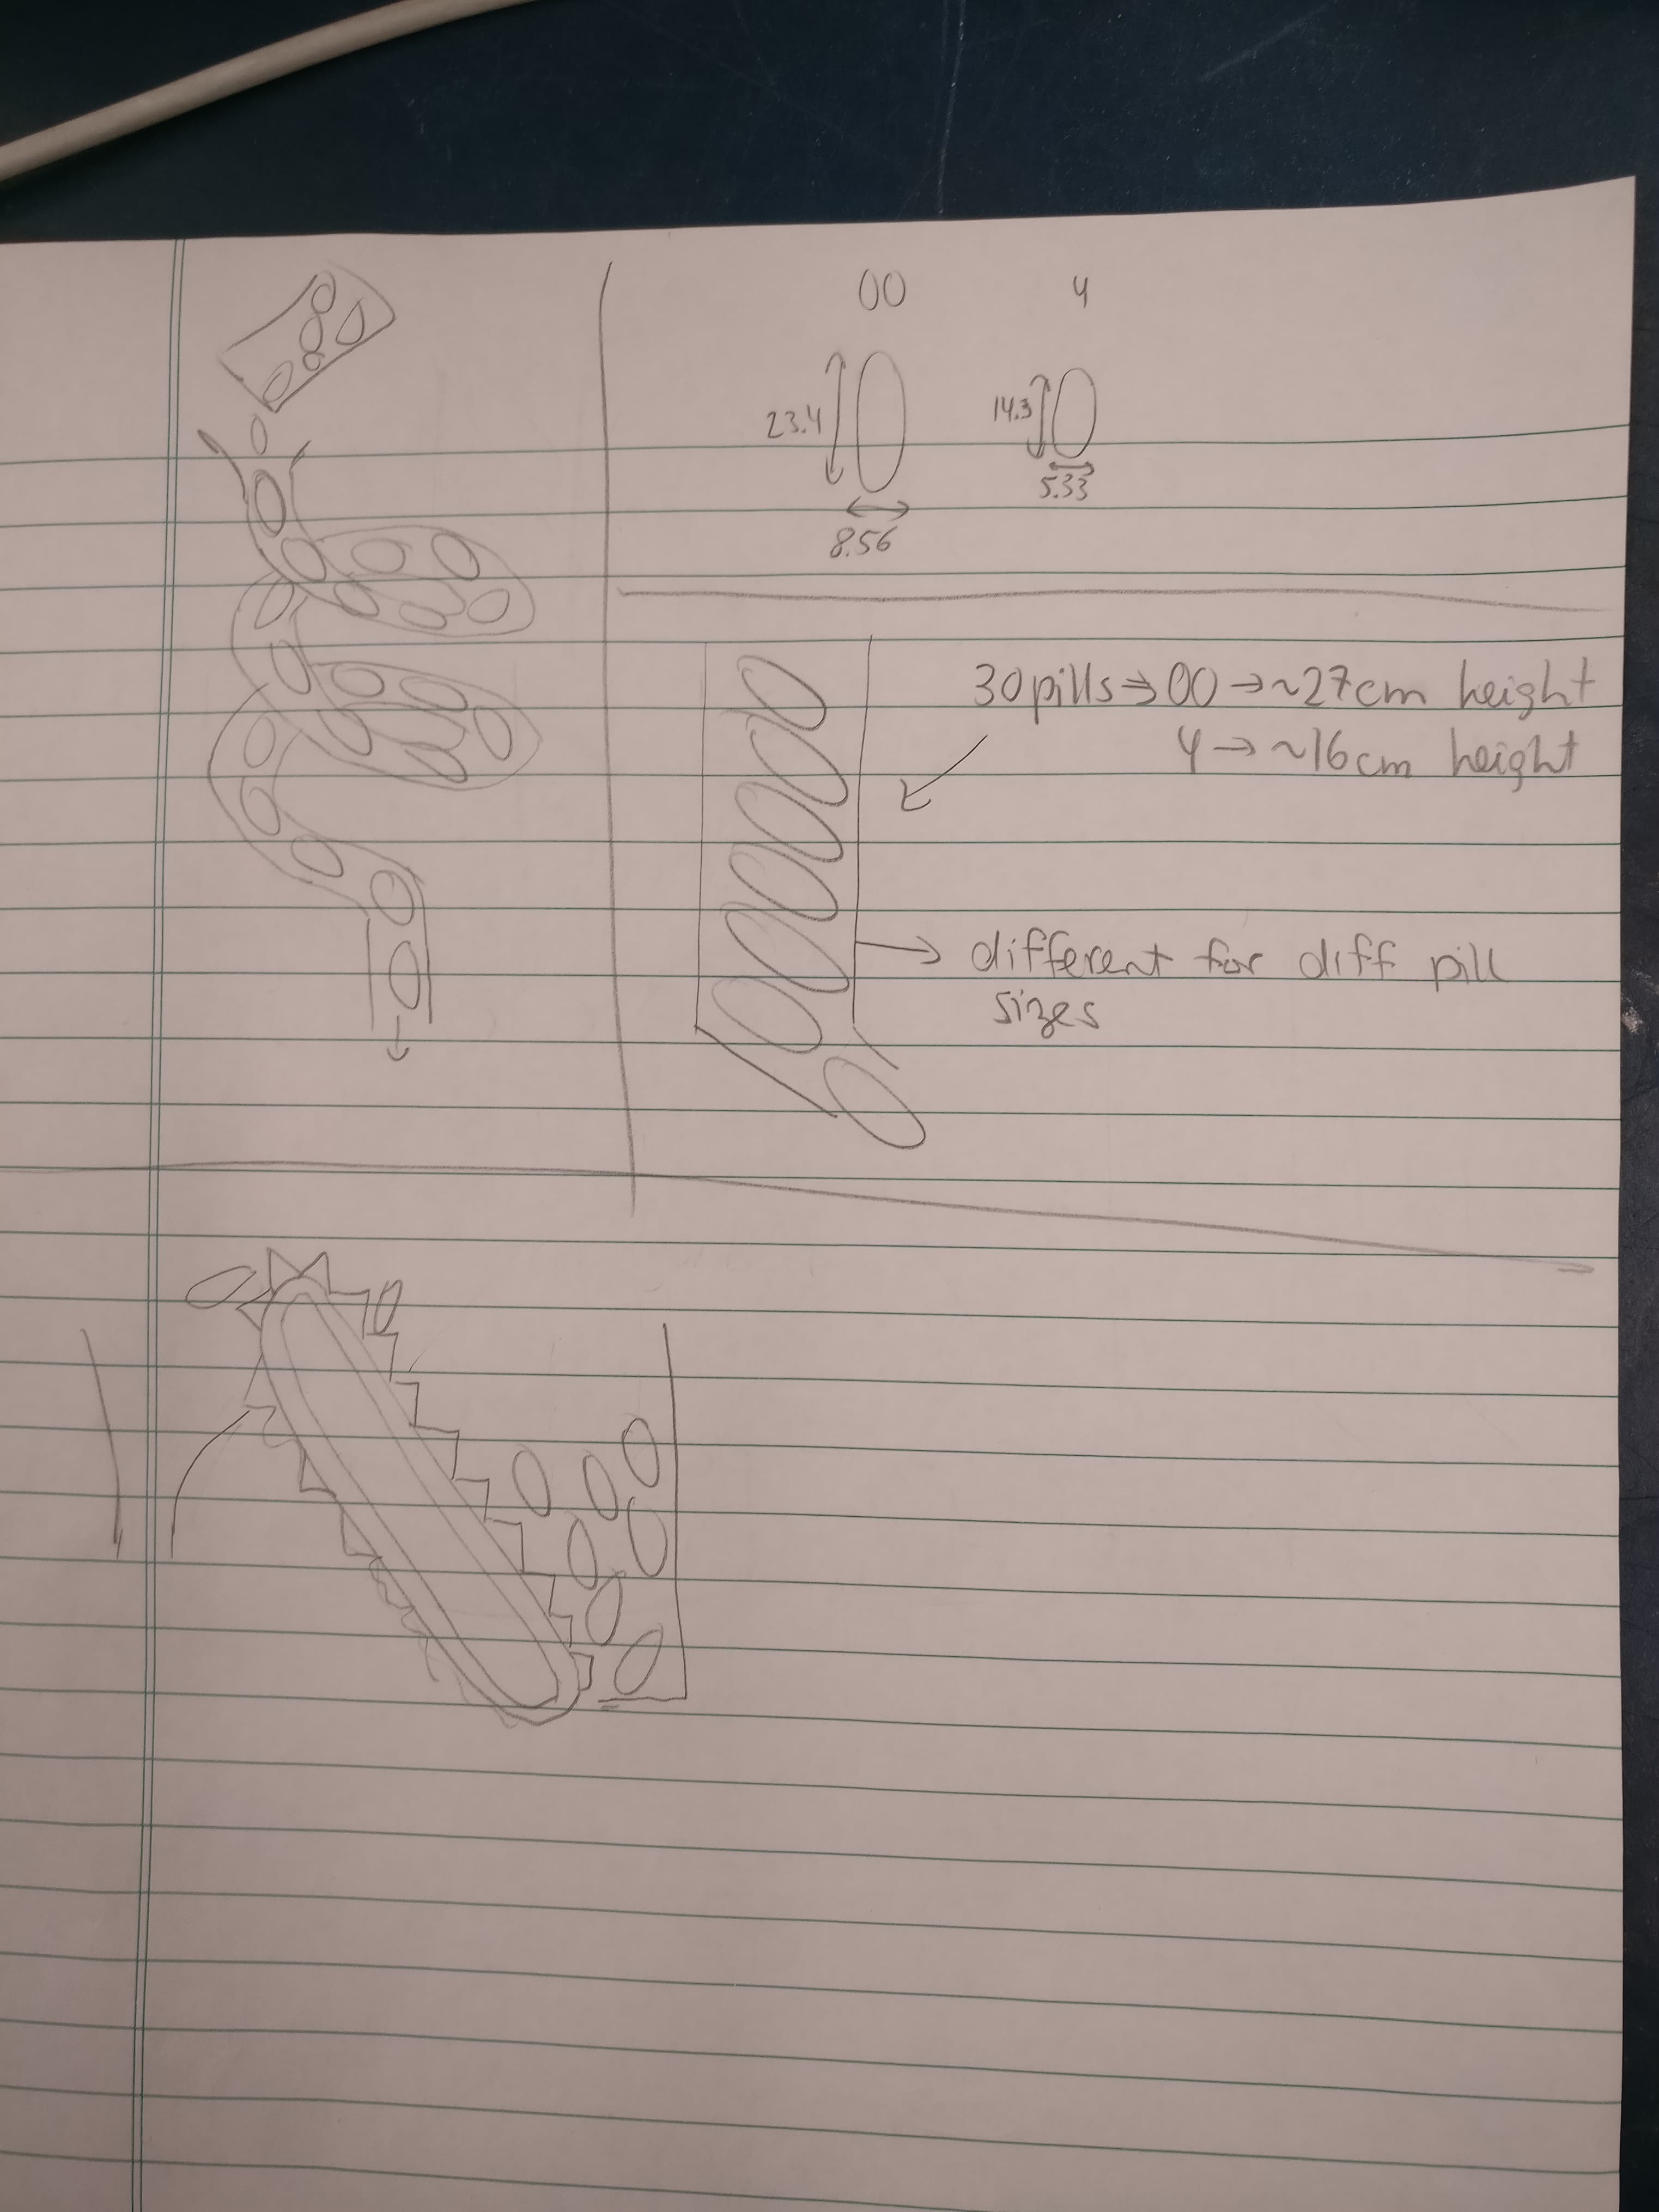 00 4
23.4 14.3
5.33
8.56
30 pills → 00 → ~27cm height
4 → ~16cm height
→ different for diff pill
sizes